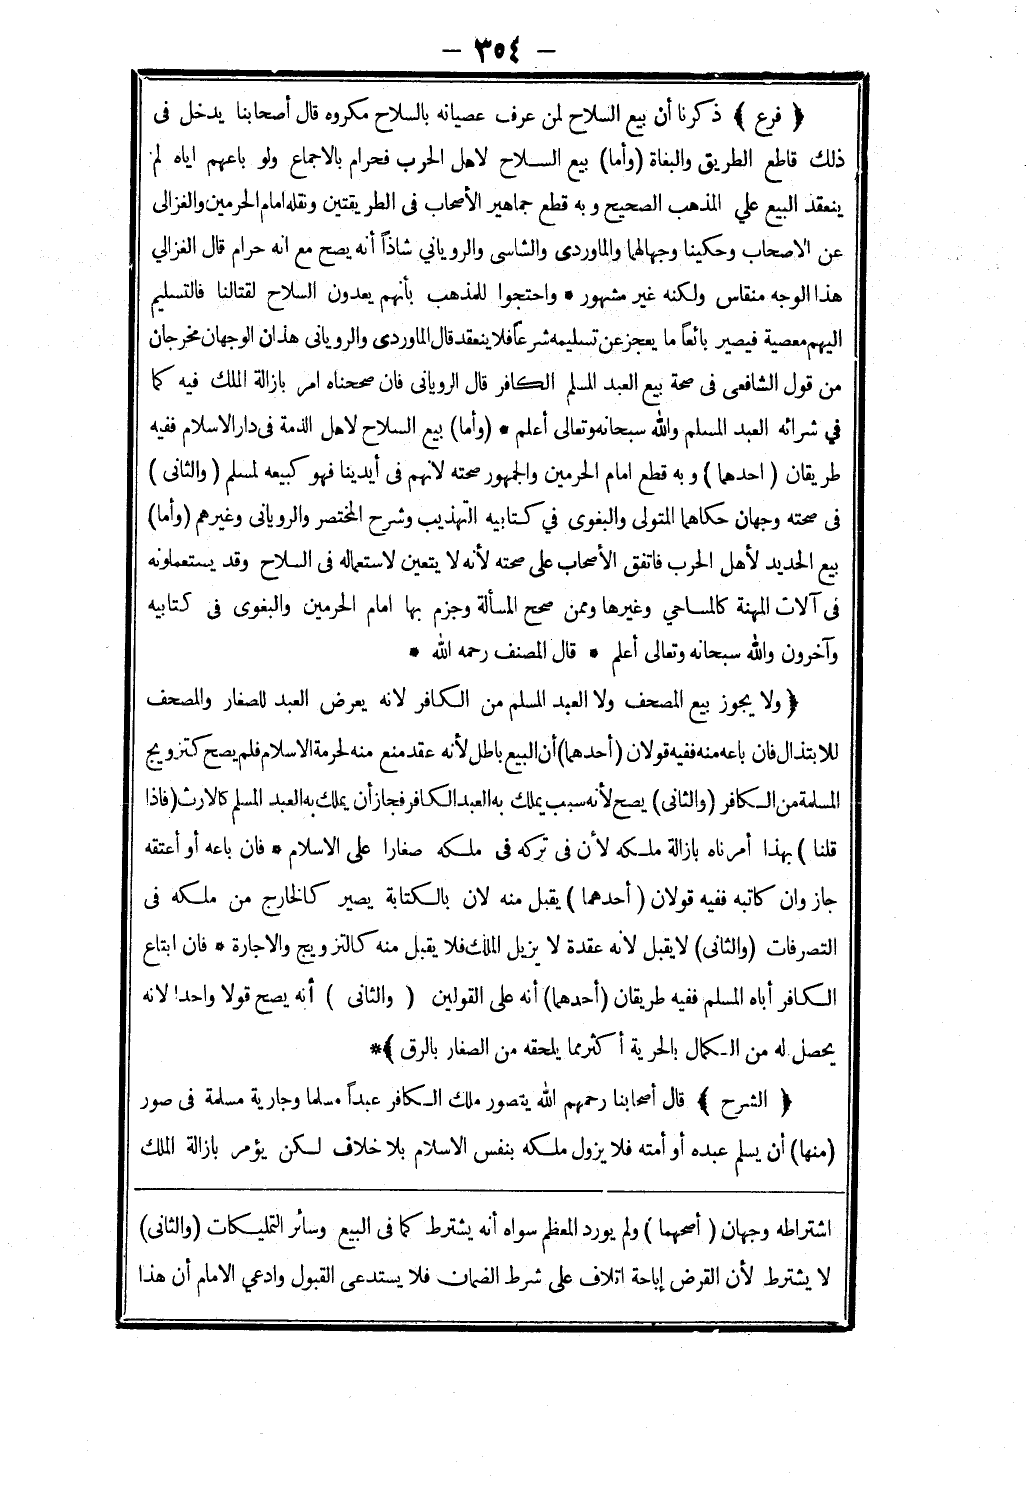 — ٣٥٤ —
﴿ فرع ﴾ ذكرنا أن بيع السلاح لمن عرف عصيانه بالسلاح مكروه قال أصحابنا يدخل فى
ذلك قاطع الطريق والبغاة (وأما) بيع السلاح لاهل الحرب فحرام بالاجماع ولو باعهم اياه لم
ينعقد البيع علي المذهب الصحيح و به قطع جماهير الأصحاب فى الطريقتين ونقله امام الحرمين والغزالى
عن الاصحاب وحكينا وجهالهما والماوردى والشاسى والروياني شاذاً أنه يصح مع انه حرام قال الغزالي
هذا الوجه منقاس ولكنه غير مشهور * واحتجوا للمذهب بأنهم يعدون السلاح لقتالنا فالتسليم
اليهم معصية فيصير بائعاً ما يعجز عن تسليمه شرعاً فلا ينعقد قال الماوردى والرويانى هذان الوجهان مخرجان
من قول الشافعى فى صحة بيع العبد المسلم الكافر قال الرويانى فان صححناه امر بازالة الملك فيه كما
في شرائه العبد المسلم والله سبحانه وتعالى أعلم * (وأما) بيع السلاح لاهل الذمة فى دار الاسلام ففيه
طريقان ( احدهما ) و به قطع امام الحرمين والجمهور صحته لانهم فى أيدينا فهو كبيعه لمسلم ( والثانى )
فى صحته وجهان حكاهما المتولى والبغوى في كتابيه التهذيب وشرح المختصر والرويانى وغيرهم (وأما)
بيع الحديد لأهل الحرب فاتفق الأصحاب على صحته لأنه لا يتعين لاستعماله فى السلاح وقد يستعملونه
فى آلات المهنة كالمساحي وغيرها وممن صحح المسألة وجزم بها امام الحرمين والبغوى فى كتابيه
وآخرون والله سبحانه وتعالى أعلم * قال المصنف رحمه الله *
﴿ ولا يجوز بيع المصحف ولا العبد المسلم من الكافر لانه يعرض العبد للصغار والمصحف
للابتذال فان باعه منه ففيه قولان (أحدهما) أن البيع باطل لأنه عقد منع منه لحرمة الاسلام فلم يصح كتزويج
المسلمة من الكافر (والثانى) يصح لأنه سبب يملك به العبد الكافر فجاز أن يملك به العبد المسلم كالارث (فاذا
قلنا ) بهذا أمرناه بازالة ملكه لأن فى تركه فى ملكه صغارا على الاسلام * فان باعه أو أعتقه
جاز وان كاتبه ففيه قولان ( أحدهما ) يقبل منه لان بالكتابة يصير كالخارج من ملكه فى
التصرفات (والثانى) لايقبل لانه عقدة لا يزيل الملك فلا يقبل منه كالتزويج والاجارة * فان ابتاع
الكافر أباه المسلم ففيه طريقان (أحدهما) أنه على القولين ( والثانى ) أنه يصح قولا واحدا لانه
يحصل له من الكمال بالحرية أكثر مما يلحقه من الصغار بالرق ﴾*
﴿ الشرح ﴾ قال أصحابنا رحمهم الله يتصور ملك الكافر عبداً مسلما وجارية مسلمة فى صور
(منها) أن يسلم عبده أو أمته فلا يزول ملكه بنفس الاسلام بلا خلاف لكن يؤمر بازالة الملك
اشتراطه وجهان ( أصحهما ) ولم يورد المعظم سواه أنه يشترط كما فى البيع وسائر التمليكات (والثانى)
لا يشترط لأن القرض إباحة اتلاف على شرط الضمان فلا يستدعى القبول وادعي الامام أن هذا